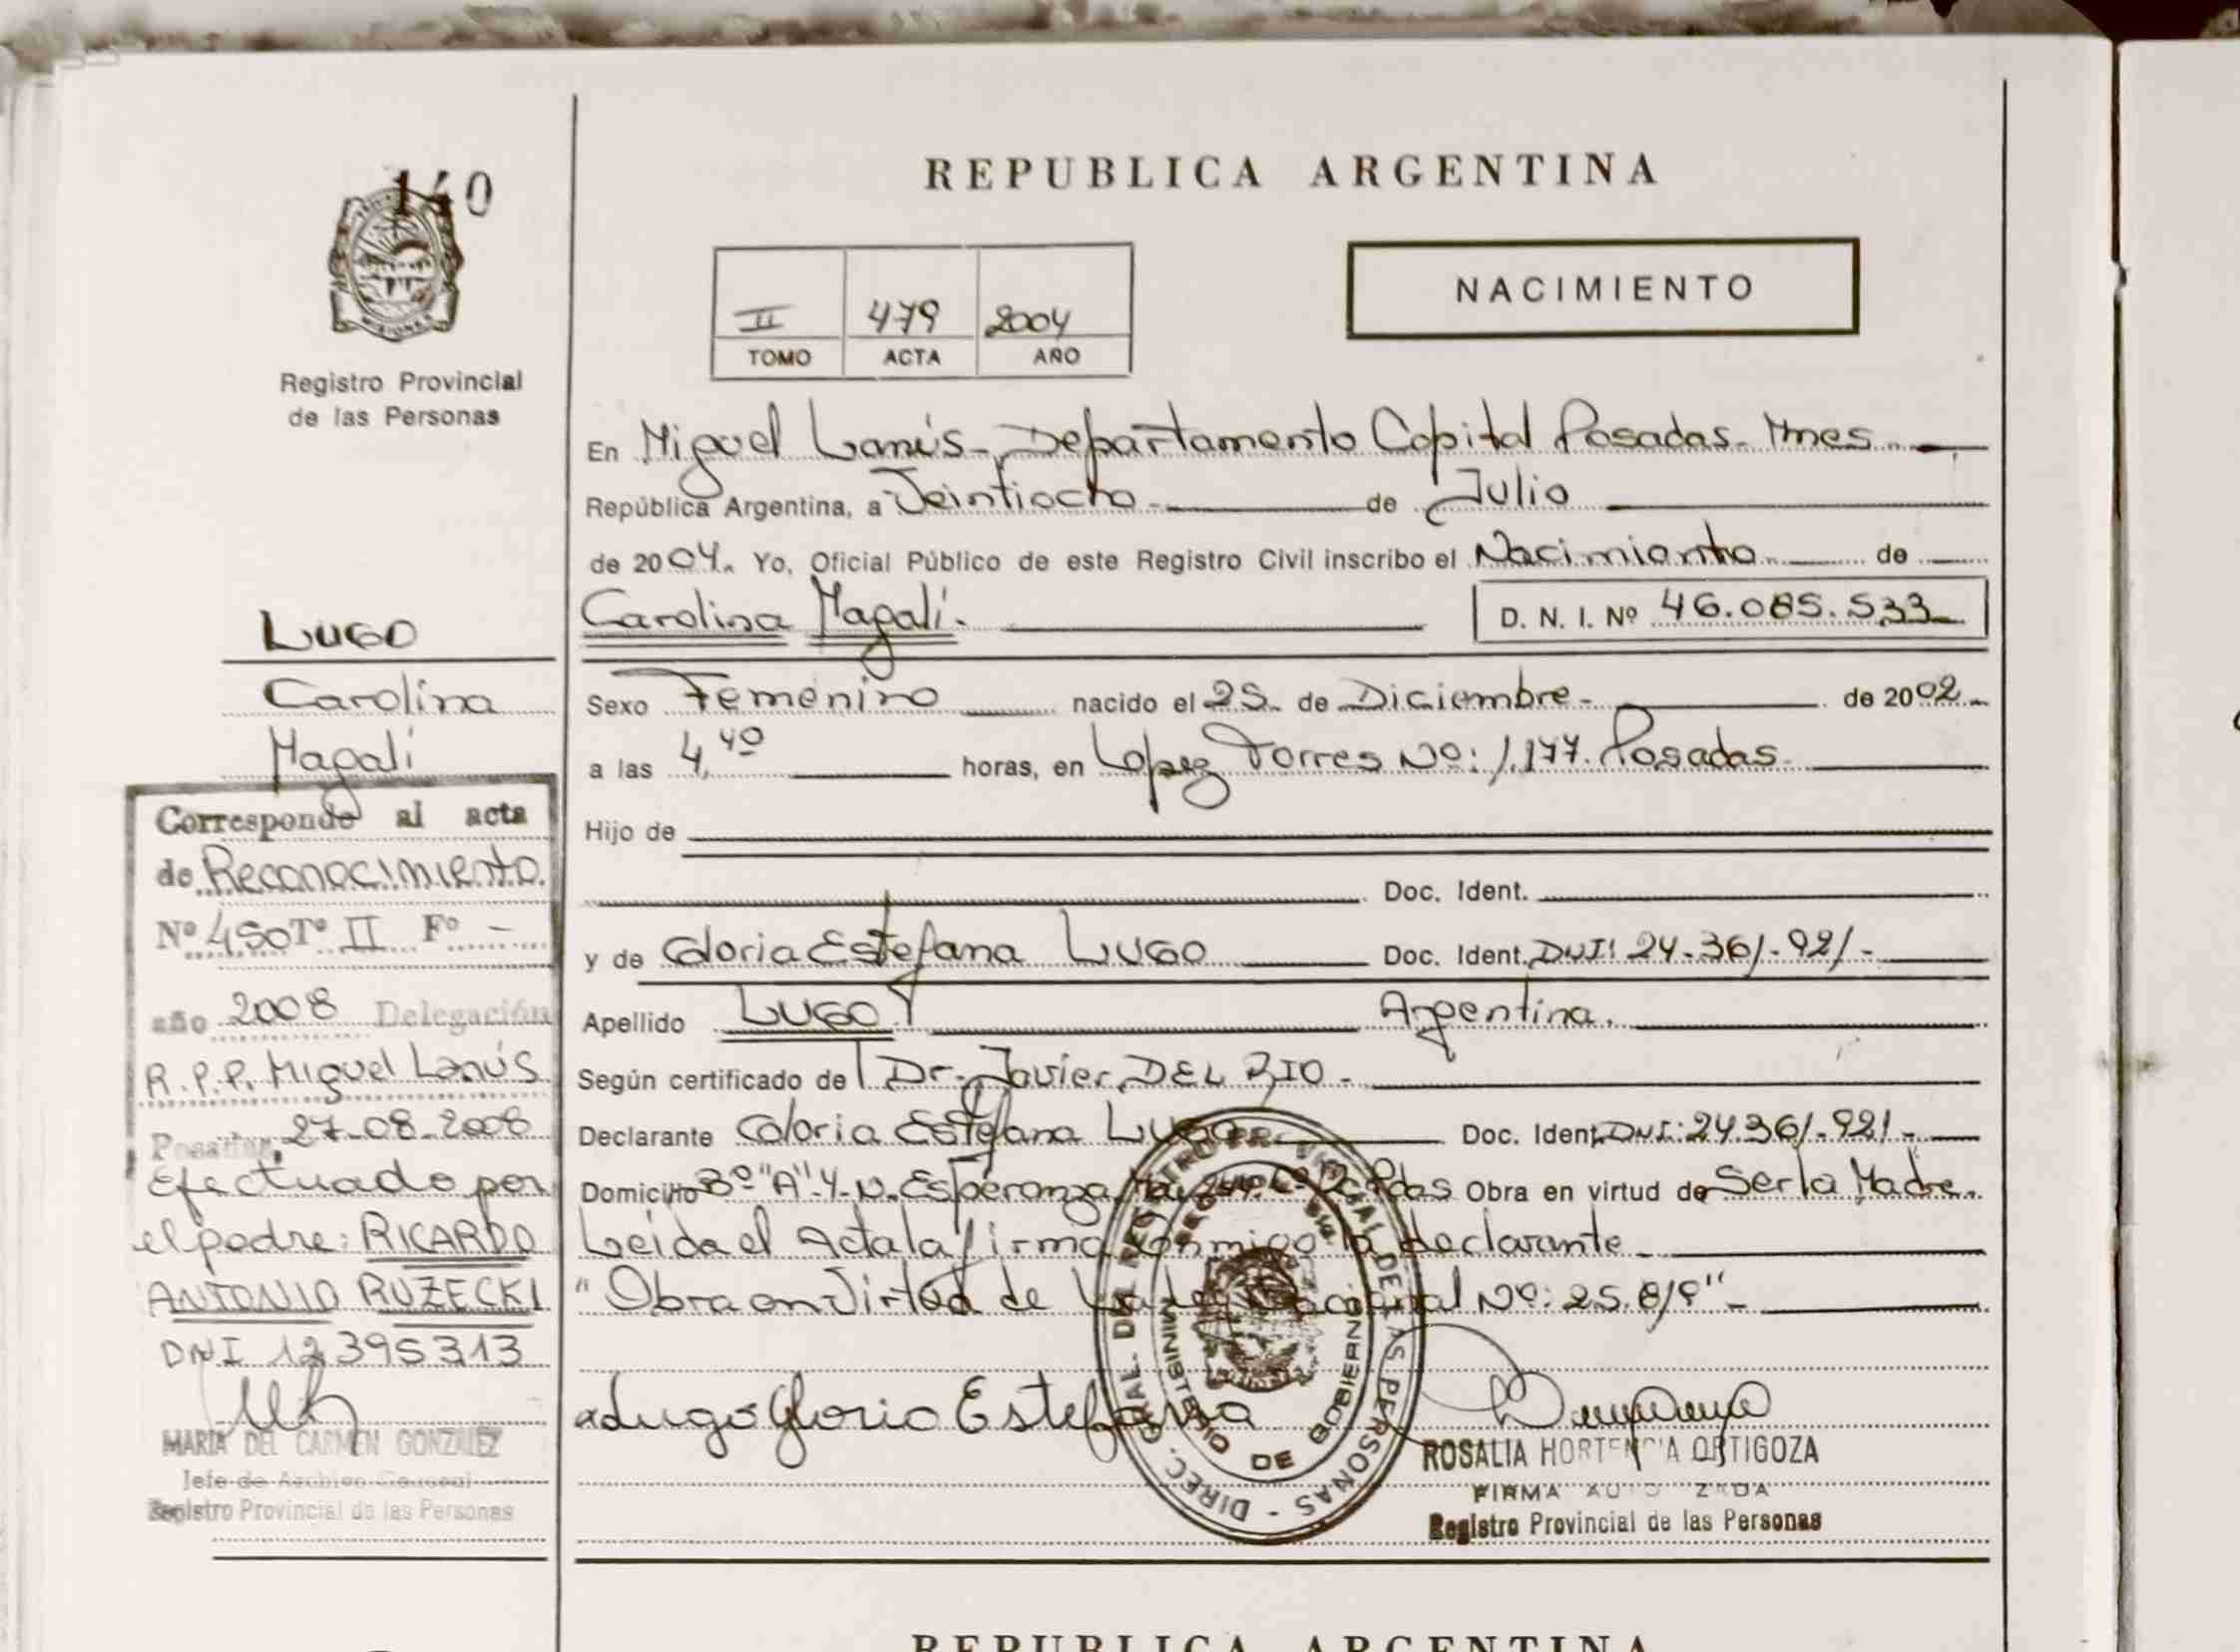 140
MISIONES
Registro Provincial
de las Personas
LUGO
Carolina
Magalí
Corresponde al acta
de Reconocimiento.
Nº 450 Tº II Fº -
año 2008 Delegación
R.P.P. Miguel Lanús
Posadas, 27-08-2008
Efectuado por
el padre: RICARDO
ANTONIO RUZECKI
DNI 12395313
MARIA DEL CARMEN GONZALEZ
Jefe de Archivo General
Registro Provincial de las Personas
REPUBLICA ARGENTINA
II 479 2004
TOMO ACTA AÑO
NACIMIENTO
En Miguel Lanús- Departamento Capital Posadas- Mnes.-
República Argentina, a Veintiocho - de Julio
de 2004. Yo, Oficial Público de este Registro Civil inscribo el Nacimiento de
Carolina Magalí.
D. N. I. Nº 46.085.533
Sexo Femenino nacido el 25 de Diciembre - de 2002 -
a las 4,40 horas, en López Torres Nº: 1.177. Posadas.
Hijo de
Doc. Ident.
y de Gloria Estefana LUGO Doc. Ident. DNI: 24.361.921-
Apellido LUGO Argentina.
Según certificado de Dr. Javier DEL RIO -
Declarante Gloria Estefana LUGO Doc. Ident. DNI: 24.361.921-
Domicilio Bº "A"4- N. Esperanza Obra en virtud de Ser la Madre.
Leida el Acta la firma conmigo la declarante
"Obra en Virtud de Nacional Nº: 25.819" -
Lugo Gloria Estefana
DIREC. GRAL. DEL REGISTRO PROVINCIAL DE LAS PERSONAS -
MINISTERIO DE GOBIERNO
ROSALIA HORTENCIA ORTIGOZA
FIRMA AUTORIZADA
Registro Provincial de las Personas
REPUBLICA ARGENTINA